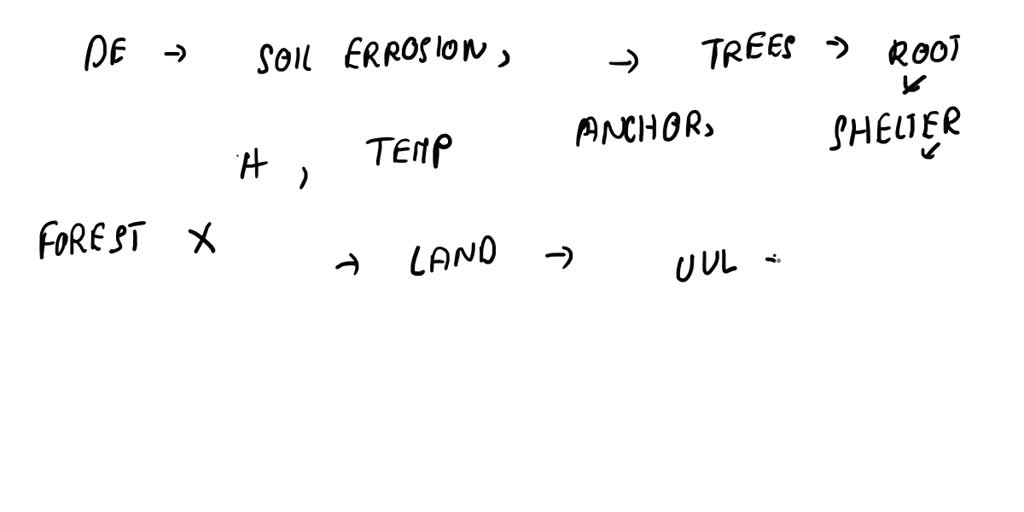 DE → SOIL ERROSION, → TREES → ROOT
ANCHOR, SHELTER
H, TEMP
FOREST X
→ LAND → UUL -